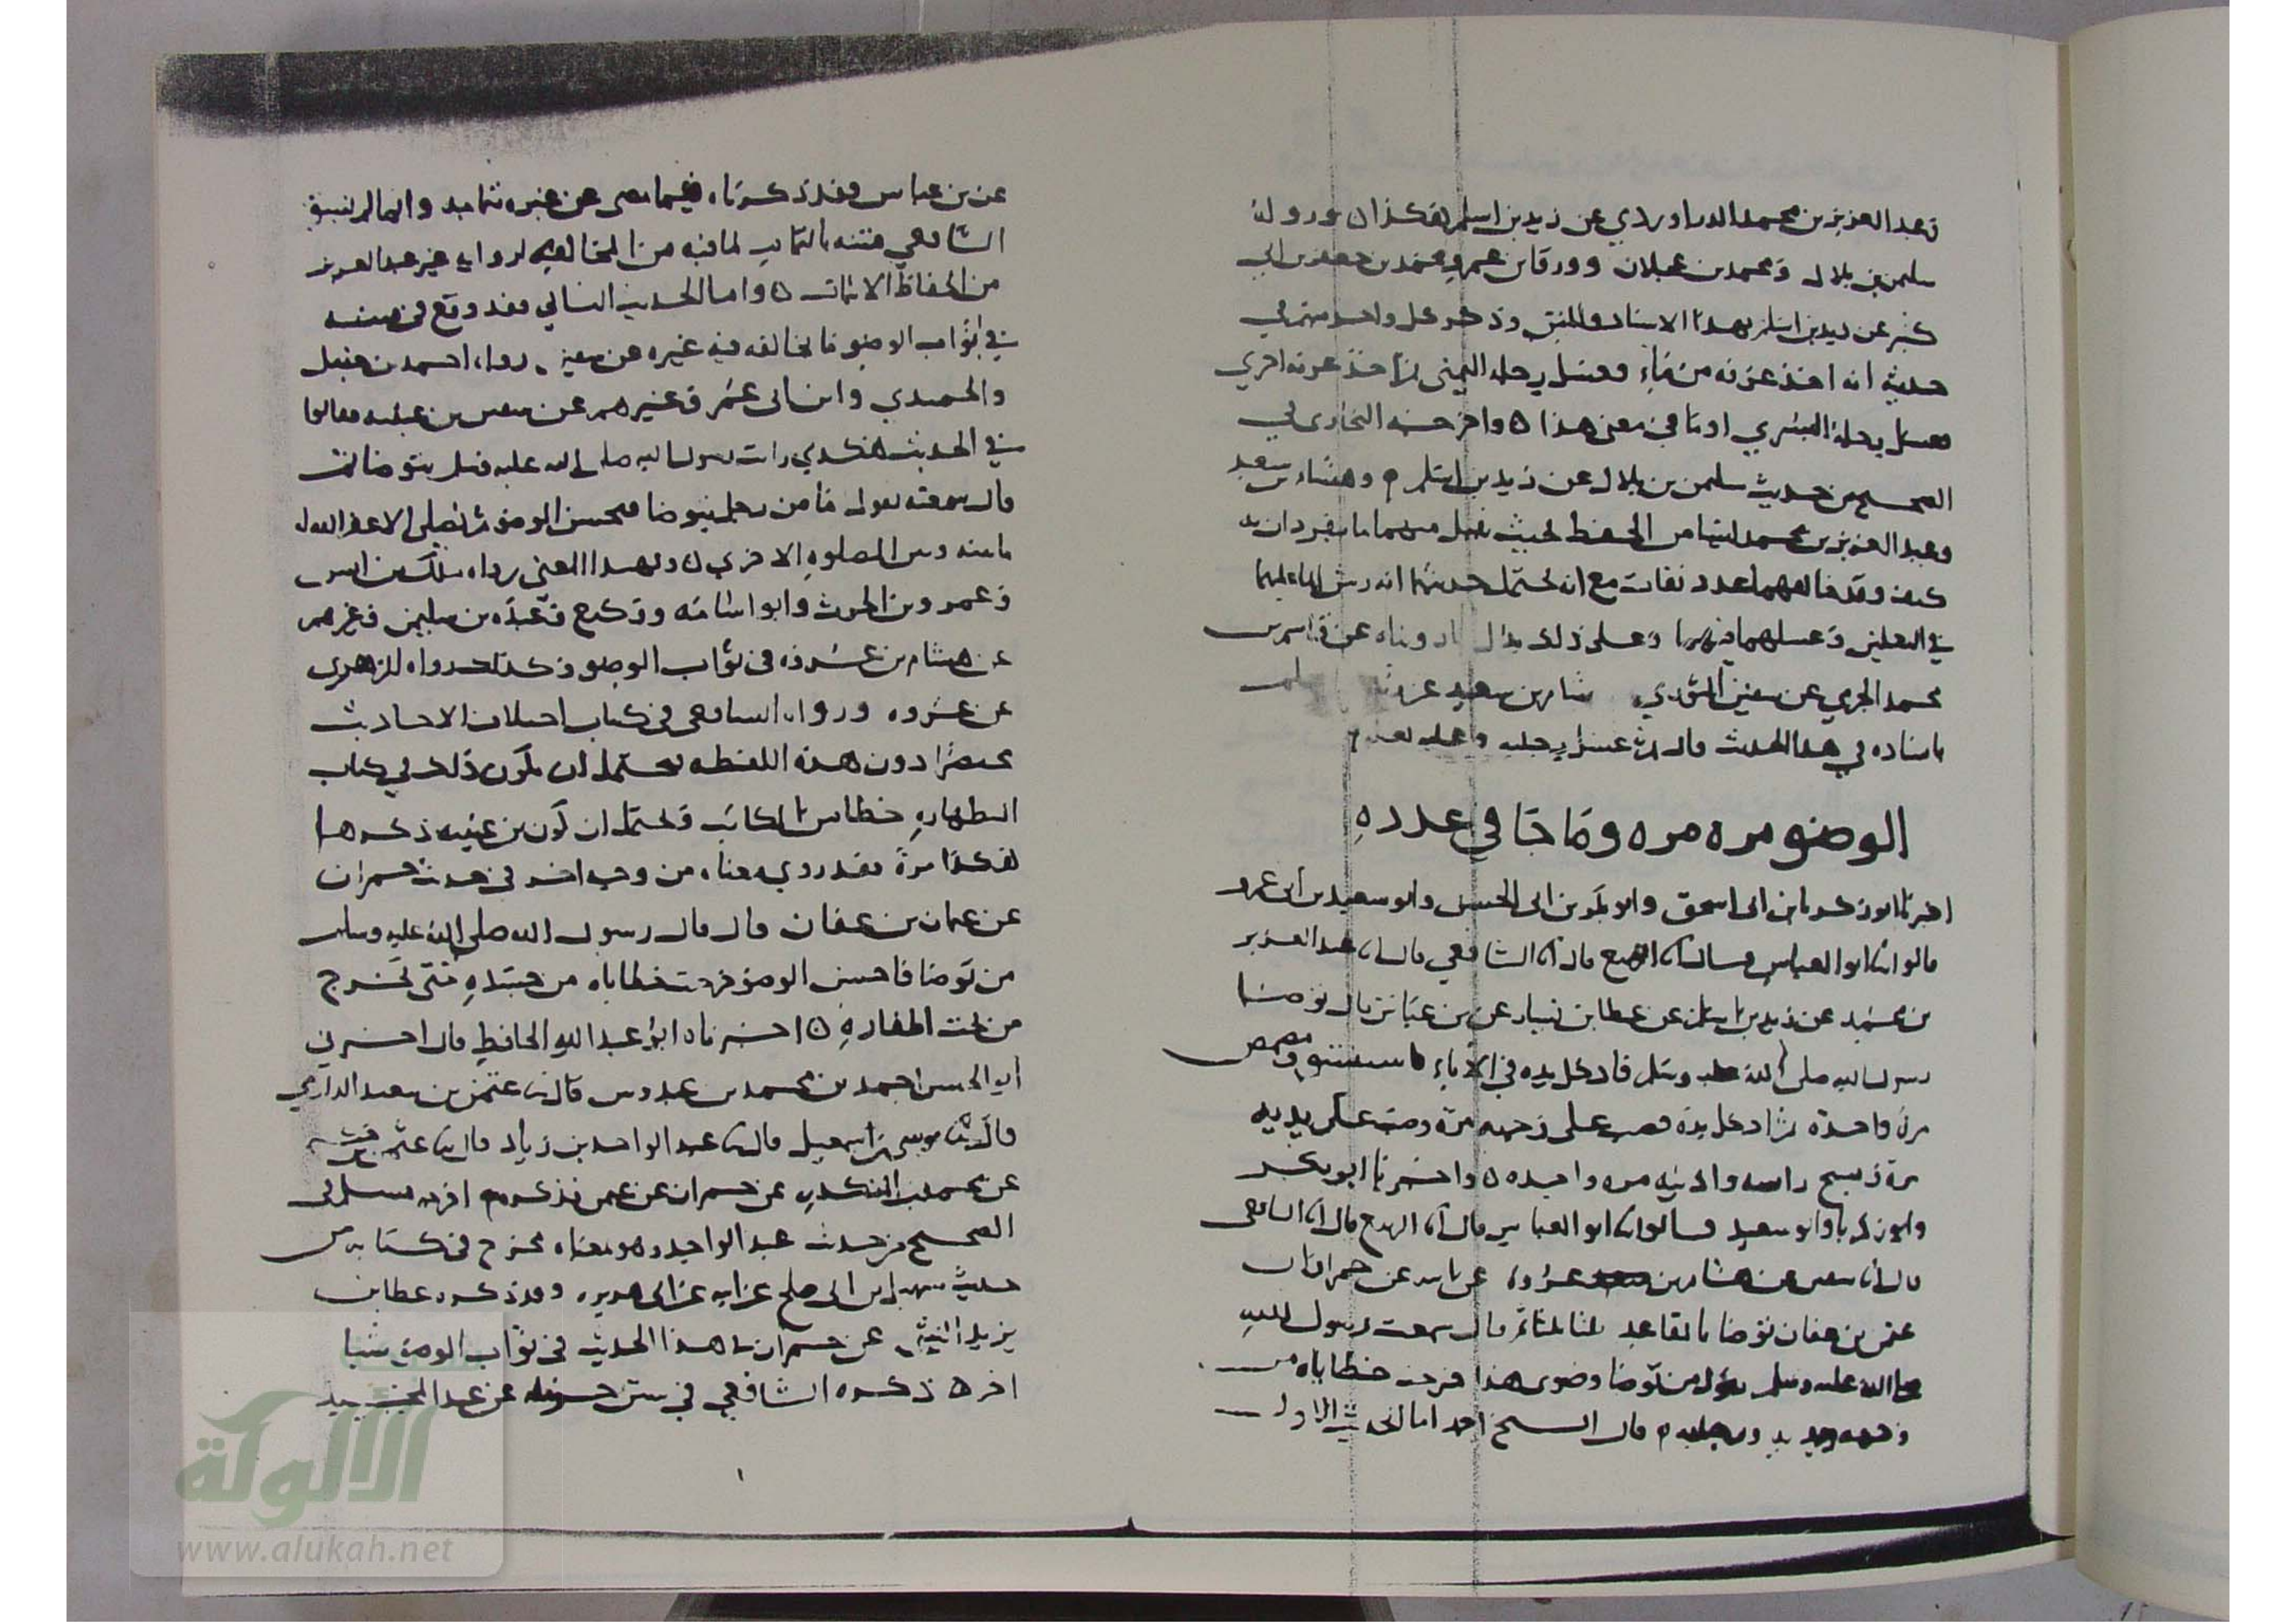 وعبد العزيز بن محمد الدراوردي عن زيد بن اسلم هكذا ورواه
سليمن بن بلال ومحمد بن عجلان وورقا بن عمر ومحمد بن جعفر بن ابي
كثير عن زيد بن اسلم بهذا الاسناد والمتن وذكر كل واحد منهم في
حديثه انه اخذ غرفة من ماء فغسل رجله اليمنى ثم اخذ غرفة اخرى
فغسل رجله اليسرى او ما في معنى هذا ٥ واخرجه البخاري في
الصحيح من حديث سليمن بن بلال عن زيد بن اسلم وهشام بن سعد
وعبد العزيز بن محمد ليسا من الحفظ بحيث يقبل منهما ما ينفردان به
كيف وقد خالفهما عدد ثقات مع انه يحتمل حديثهما انه رش الماء عليهما
في النعلين وغسلهما فيهما وعلى ذلك يدل ما رويناه عن قاسم بن
محمد الجرمي عن سفين الثوري هشام بن سعيد عن زيد اسلم
باسناده في هذا الحديث قال ثم غسل رجليه وعليه نعله
الوضو مره مره وما جا في عدده
اخبرنا ابو زكريا بن ابي اسحق وابو بكر بن ابي الحسن وابو سعيد بن ابي عمرو
قالوا انا ابو العباس قال انا الربيع قال انا الشافعي قال انا عبد العزيز
بن محمد عن زيد بن اسلم عن عطا بن يسار عن بن عباس قال توضا
رسول الله صلى الله عليه وسلم فادخل يده في الاناء فاستنشق ومضمض
مرة واحدة ثم ادخل يده فصب على وجهه مرة وصب على يديه
مرة ومسح راسه واذنيه مره واحده ٥ واخبرنا ابو بكر
وابو زكريا وابو سعيد قالوا انا ابو العباس قال انا الربيع قال انا الشافعي
قال انا سفين عن هشام بن عروة عن ابيه عن حمران ان
عثمن بن عفان توضا بالمقاعد ثلثا ثلثا ثم قال سمعت رسول الله
صلى الله عليه وسلم يقول من توضا وضوى هذا خرجت خطاياه من
وجهه ويديه ورجليه قال الشيخ احمد اما الحديث الاول
عن بن عباس فقد ذكرناه فيما مضى عن غيره تمامه وانما لم يسق
الشافعي متنه بالتمام لما فيه من المخالفه لرواية غير عبد العزيز
من الحفاظ الاثبات ٥ واما الحديث الثاني فقد وقع في متنه
في ثواب الوضو ما يخالفه فيه غيره عن سفين رواه احمد بن حنبل
والحميدي وابن ابي عمر وغيرهم عن سفين بن عيينه فقالوا
في الحديث هكذي رايت رسول الله صلى الله عليه وسلم يتوضا ثم
قال سمعته يقول ما من رجل يتوضا فيحسن الوضو ثم يصلي الا غفر الله له
ما بينه وبين الصلوة الاخرى ٥ وبهذا المعنى رواه ملك بن انس
وعمرو بن الحرث وابو اسامة ووكيع وعبدة بن سليمن وغيرهم
عن هشام بن عروة في ثواب الوضو وكذلك رواه الزهري
عن عروه ورواه الشافعي في كتاب اختلاف الاحاديث
مختصرا دون هذه اللفظه يحتمل ان يكون ذلك في كتاب
الطهاره خطا من الكاتب ويحتمل ان يكون بن عيينه ذكرها
هكذا مرة فقد روي معناه من وجه اخر في حديث حمران
عن عثمان بن عفان قال قال رسول الله صلى الله عليه وسلم
من توضا فاحسن الوضو خرجت خطاياه من جسده حتى تخرج
من تحت اظفاره ٥ اخبرناه ابو عبد الله الحافظ قال اخبرني
ابو الحسن احمد بن محمد بن عبدوس قال نا عثمن بن سعيد الدارمي
قال نا موسى بن اسمعيل قال نا عبد الواحد بن زياد قال نا عثمن بن حكيم
عن محمد بن المنكدر عن حمران عن عثمن فذكره اخرجه مسلم في
الصحيح من حديث عبد الواحد وهو معناه مخرج في كتابه من
حديث سهيل بن ابي صلح عن ابيه عن ابي هريره وقد ذكره عطا بن
يزيد الليثي عن حمران هذا الحديث في ثواب الوضو شيا
اخر ٥ ذكره الشافعي في سنن حرمله عن عبد المجيد
الألوكة
www.alukah.net